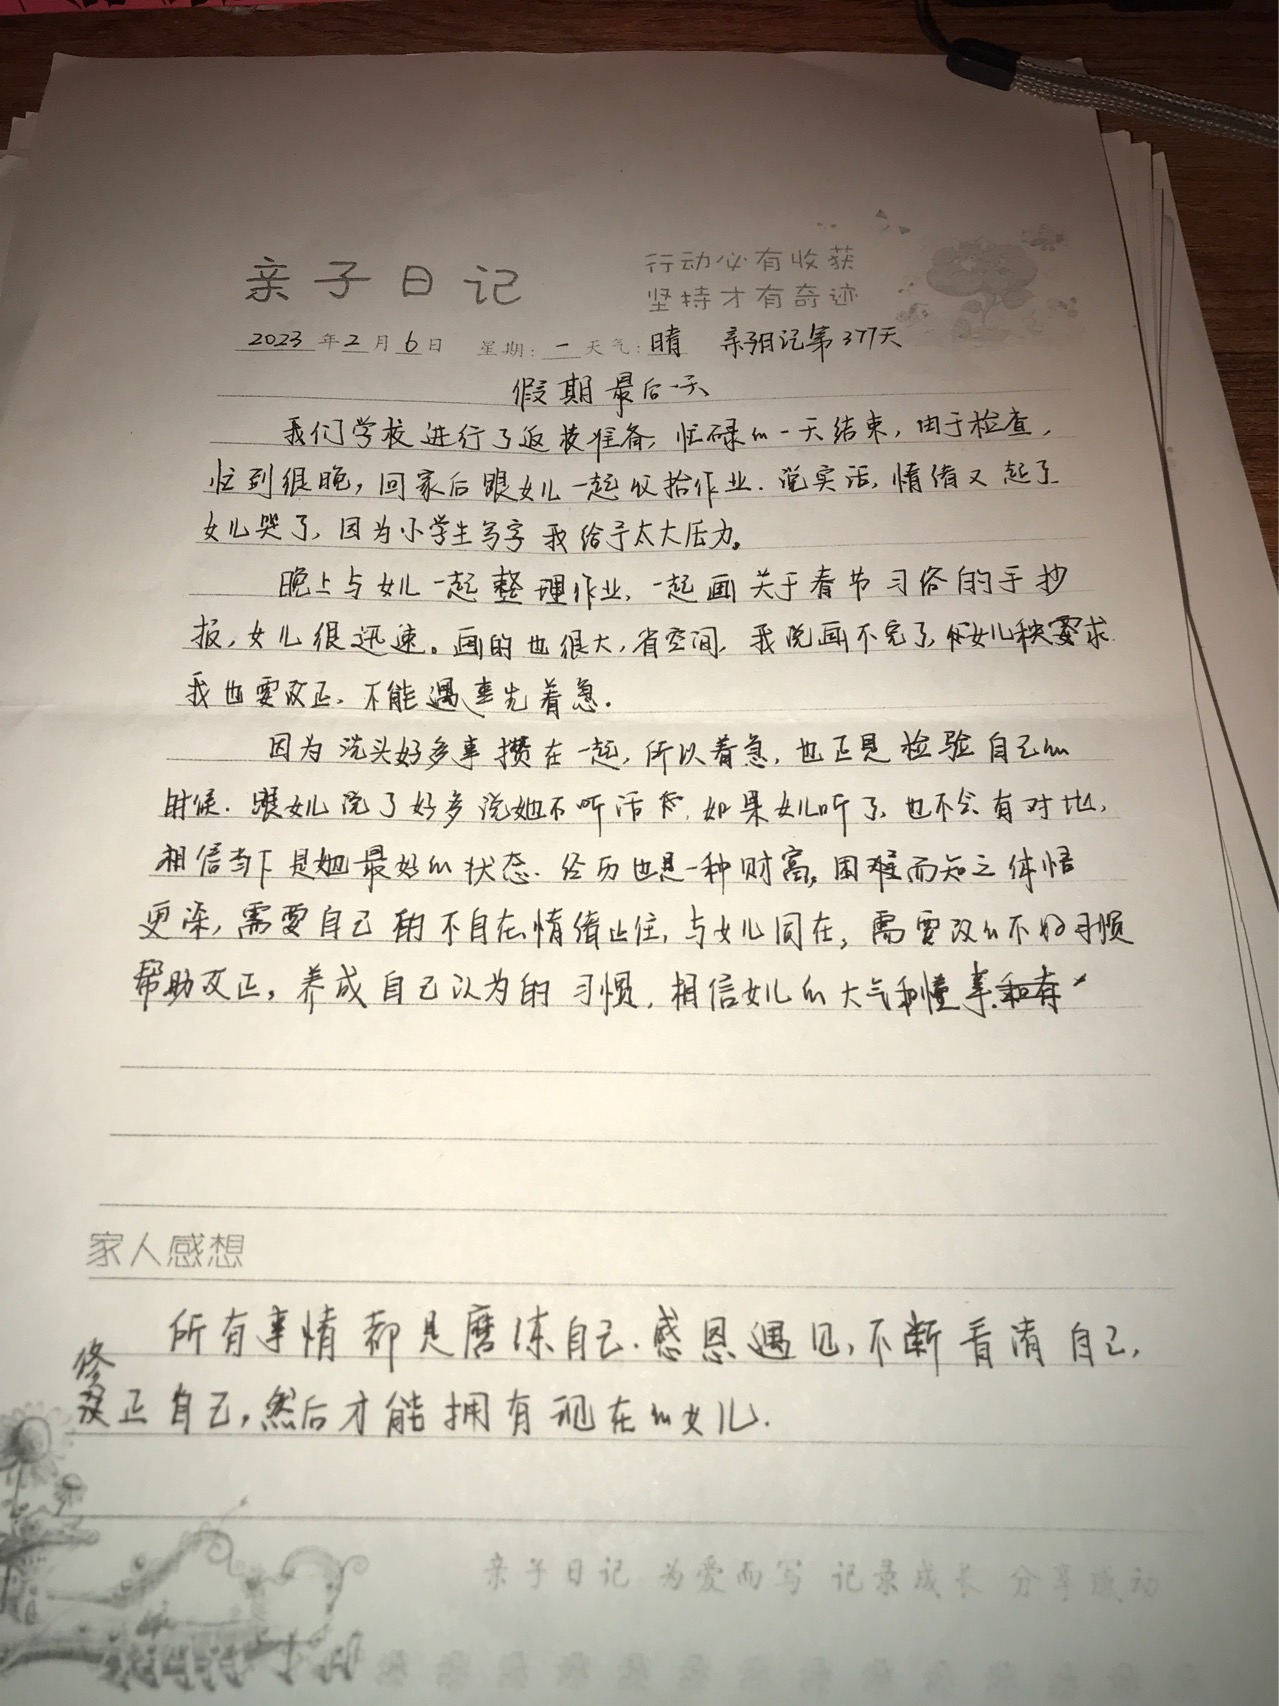 亲子日记
行动必有收获
坚持才有奇迹
2023年2月6日 星期:一 天气:晴 亲子日记第377天
假期最后一天
我们学校进行了返校准备,忙碌的一天结束,由于检查,
忙到很晚,回家后跟女儿一起收拾作业.说实话,情绪又起了
女儿哭了,因为小学生写字我给予太大压力。
晚上与女儿一起整理作业,一起画关于春节习俗的手抄
报,女儿很迅速。画的也很大,省空间,我说画不完了,女儿要求.
我也要改正,不能遇事先着急.
因为洗头好多事攒在一起,所以着急,也正是检验自己的
时候.跟女儿说了好多说她不听话,如果女儿听了,也不会有对比,
相信当下是她最好的状态.经历也是一种财富。困难而知之体悟
更深,需要自己的不自在情绪止住,与女儿同在,需要改的不好习惯
帮助改正,养成自己认为的习惯,相信女儿的大气和懂事.和有
家人感想
所有事情都是磨练自己.感恩遇见,不断看清自己,
修正自己,然后才能拥有现在的女儿.
亲子日记 为爱而写 记录成长 分享感动